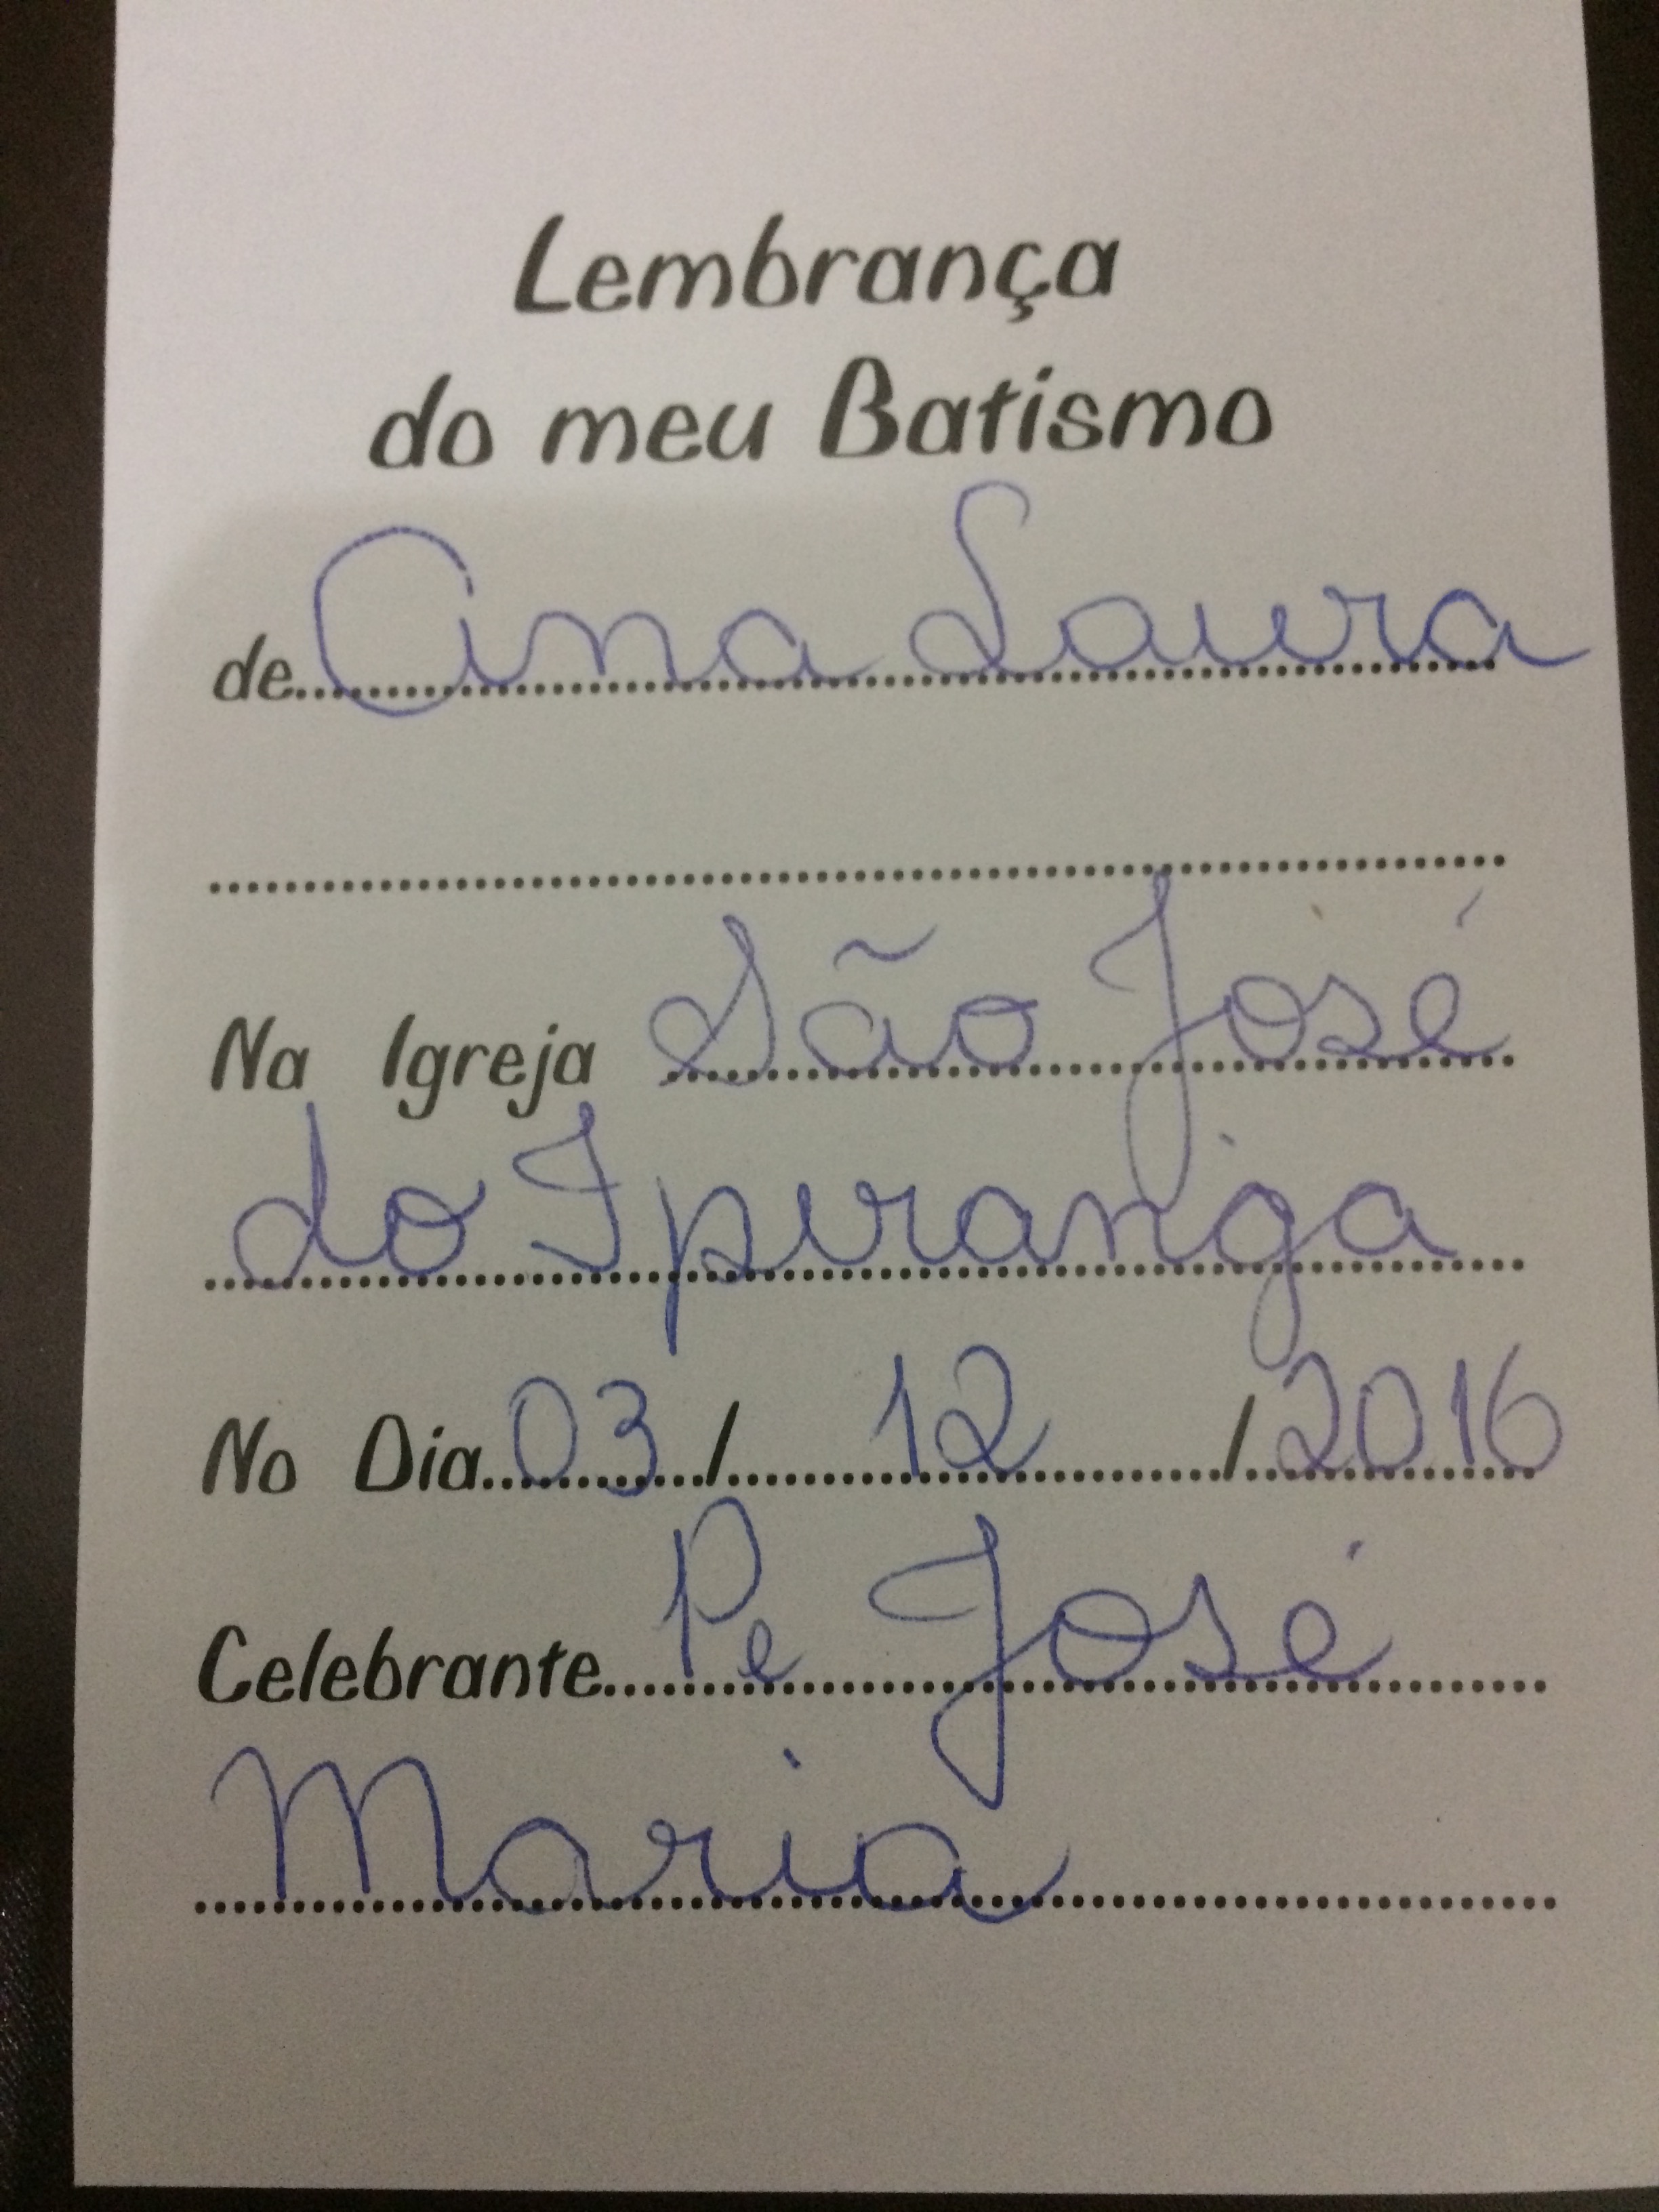 Lembrança
do meu Batismo
de Ana Laura
Na Igreja São José
do Ipiranga
No Dia 03 / 12 / 2016
Celebrante Pe José
Maria